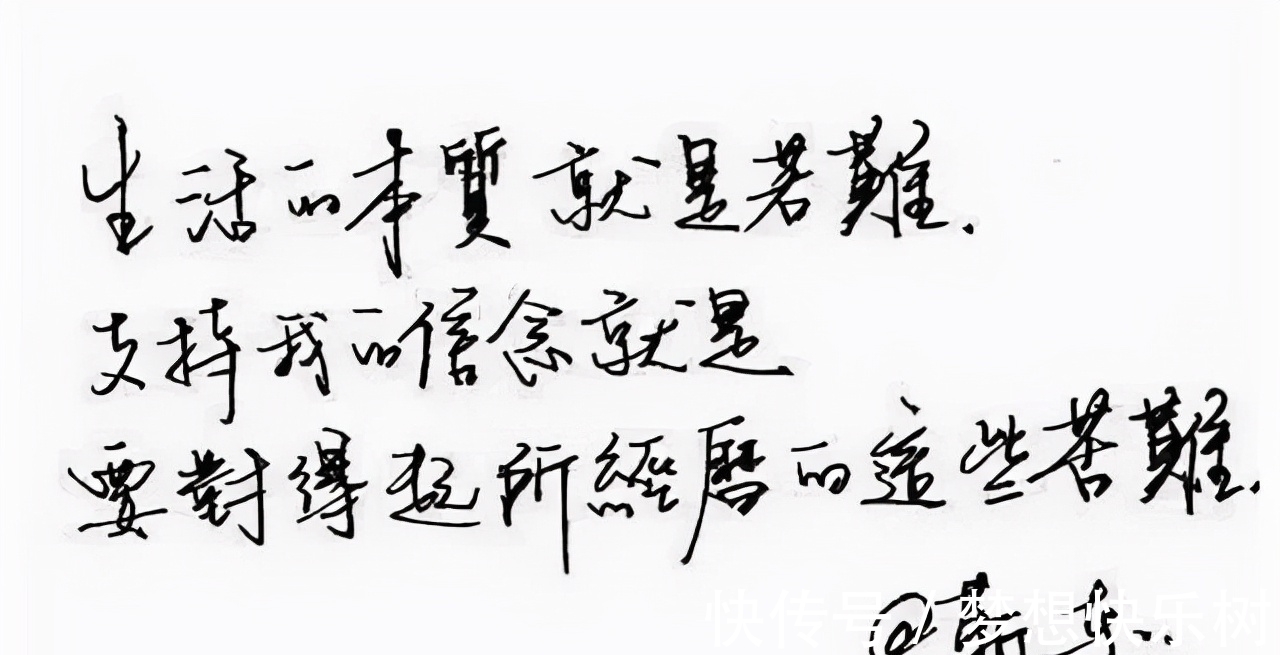 生活的本質就是苦難.
支持我的信念就是
要對得起所經曆的這些苦難.
@
快传号/梦想快乐树